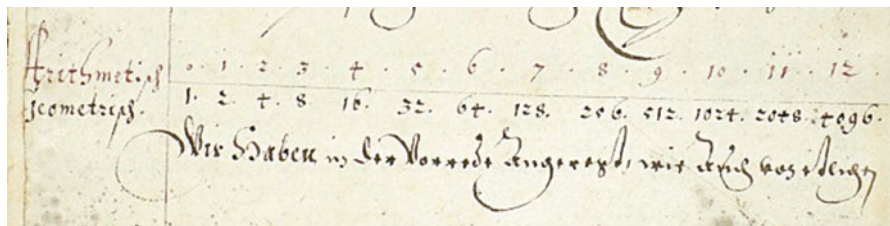 Arithmetisch 0. 1. 2. 3. 4. 5. 6. 7. 8. 9. 10. 11. 12.
geometrisch. 1. 2. 4. 8. 16. 32. 64. 128. 256. 512. 1024. 2048. 4096.
Wir Haben in der Vorrede Angeregt, wie Auch von etlichen